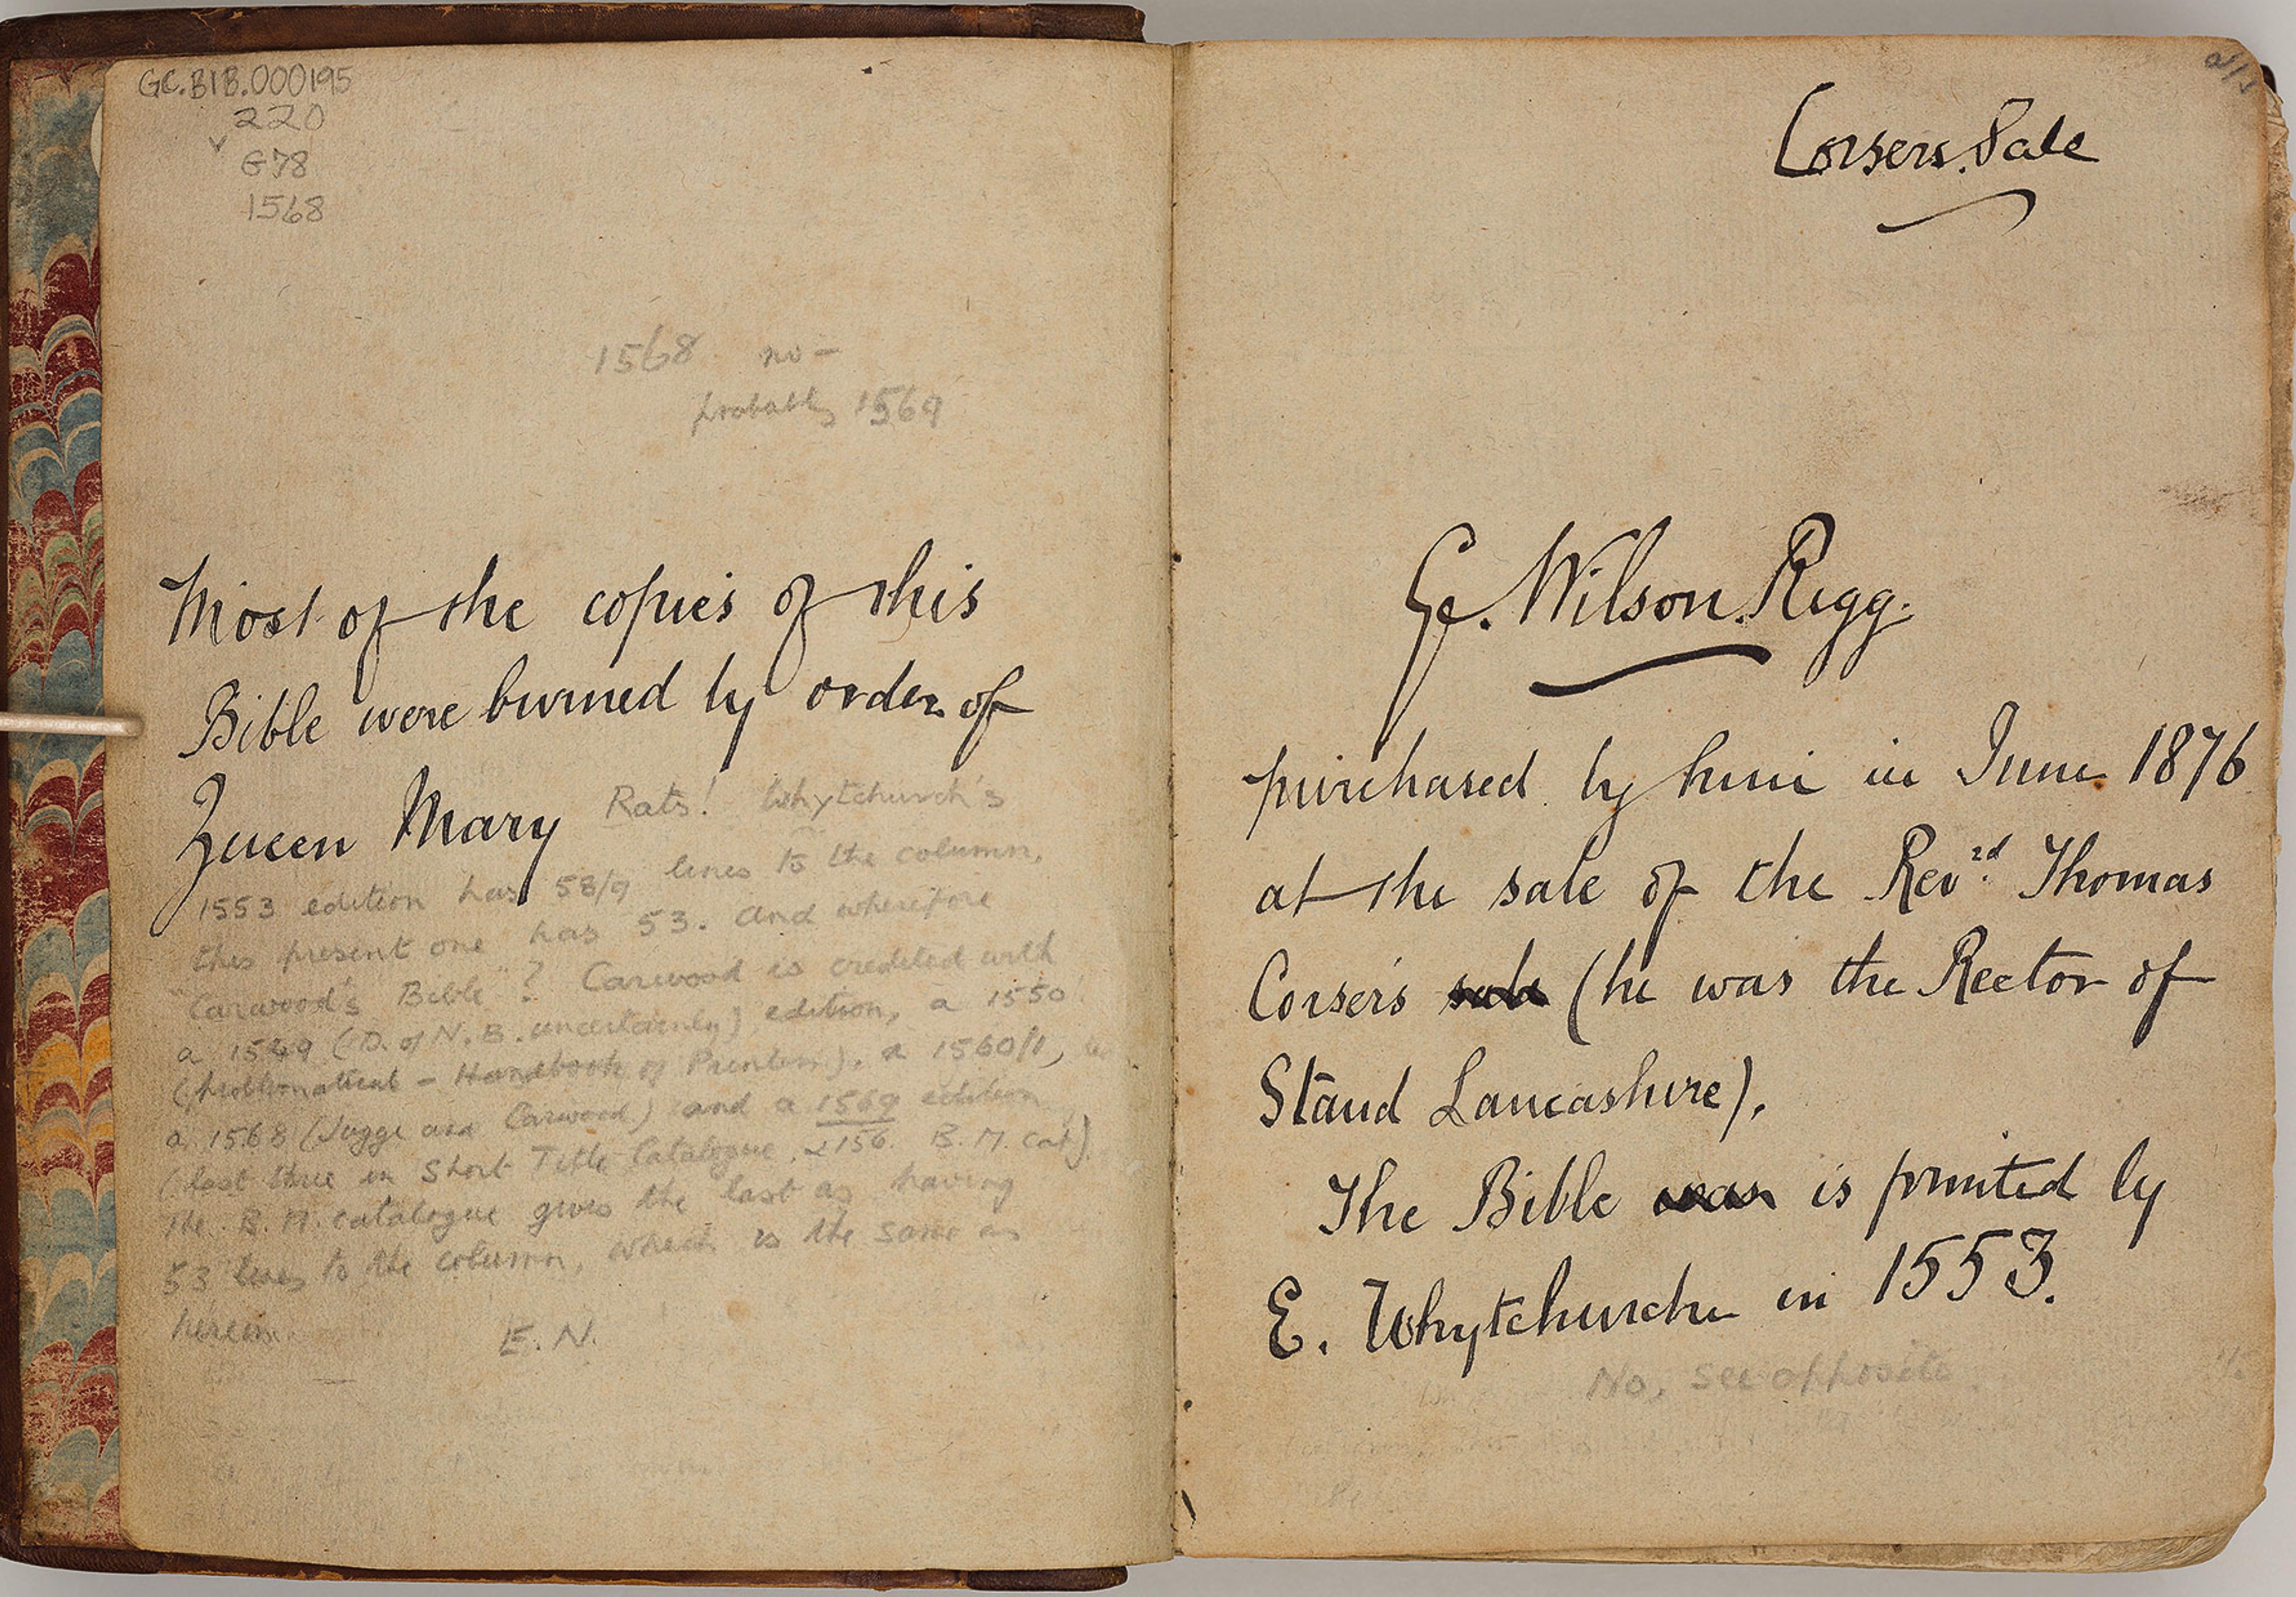 GC.BIB.000195
220
G78
1568
1568 no –
probably 1569
Most of the copies of this
Bible were burned by order of
Queen Mary Rats! Whytchurch's
1553 edition has 58/9 lines to the column,
this present one has 53. And wherefore
"Carwood's Bible"? Carwood is credited with
a 1549 (D. of N. B. uncertainly) edition, a 1550
(problematical – Handbook of Printers), a 1560/1,
a 1568 (Jugge and Carwood) and a 1569 edition
(last three in Short Title Catalogue, 2156. B. M. cat).
The B. M. catalogue gives the last as having
53 lines to the column, which is the same as
herein.
E. N.
Corsers Sale
Ge. Wilson Rigg.
purchased by him in June 1876
at the sale of the Revd. Thomas
Corser's sale (he was the Rector of
Stand Lancashire).
The Bible was is printed by
E. Whytchurche in 1553.
No, see opposite.